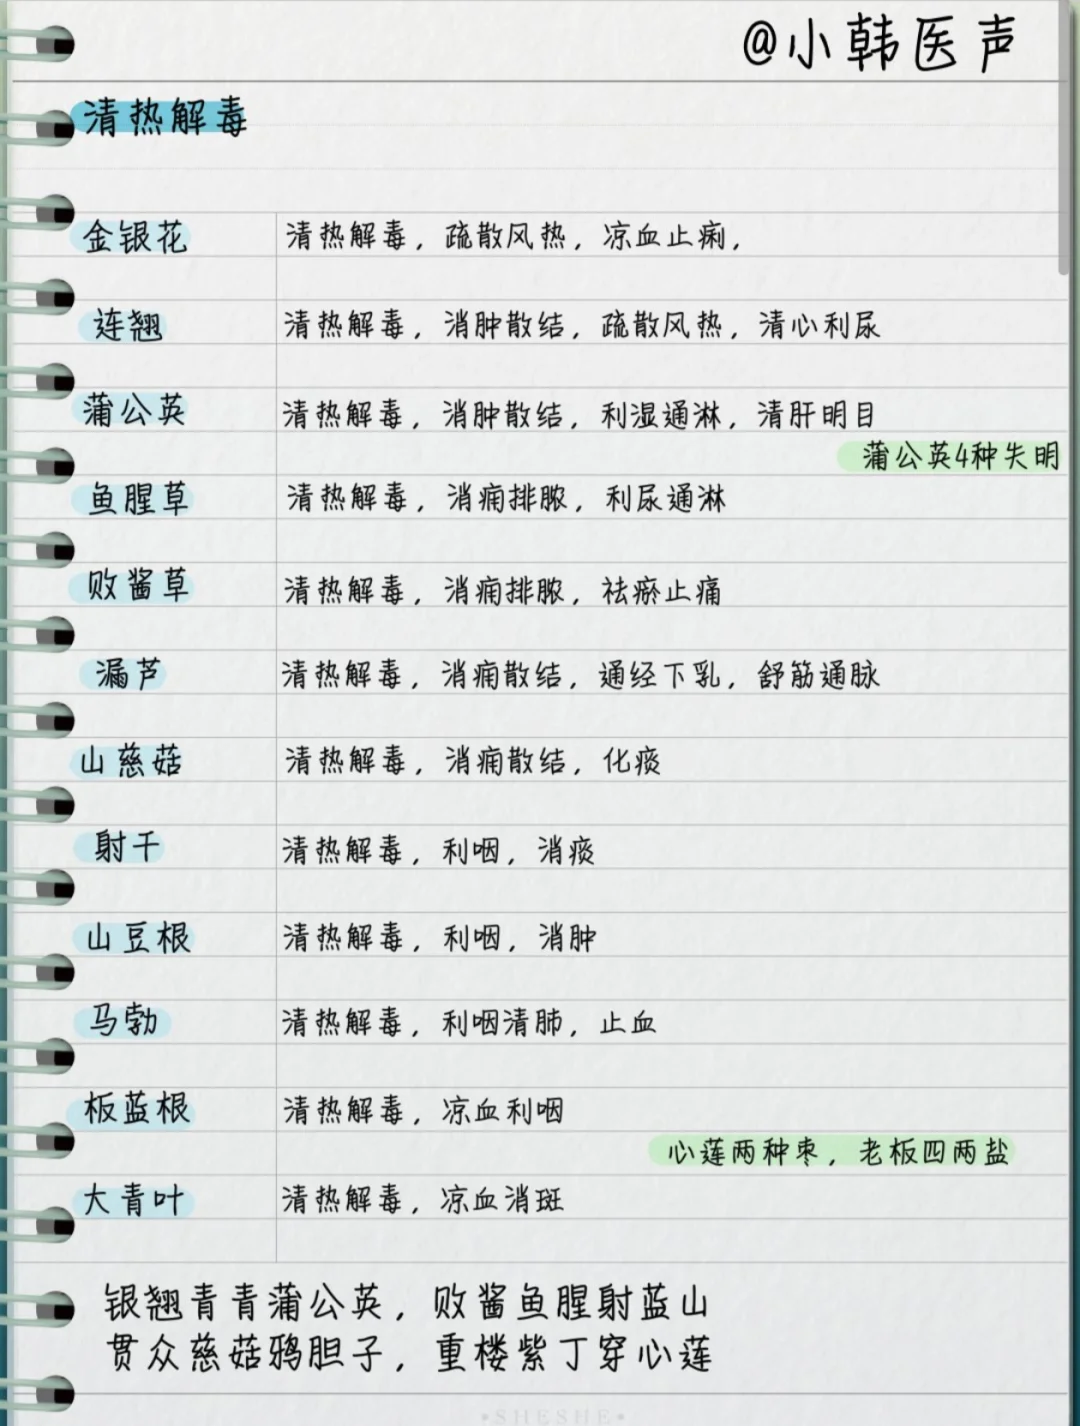 @小韩医声
清热解毒
金银花 清热解毒，疏散风热，凉血止痢，
连翘 清热解毒，消肿散结，疏散风热，清心利尿
蒲公英 清热解毒，消肿散结，利湿通淋，清肝明目
蒲公英4种失明
鱼腥草 清热解毒，消痈排脓，利尿通淋
败酱草 清热解毒，消痈排脓，祛瘀止痛
漏芦 清热解毒，消痈散结，通经下乳，舒筋通脉
山慈菇 清热解毒，消痈散结，化痰
射干 清热解毒，利咽，消痰
山豆根 清热解毒，利咽，消肿
马勃 清热解毒，利咽清肺，止血
板蓝根 清热解毒，凉血利咽
心莲两种枣，老板四两盐
大青叶 清热解毒，凉血消斑
银翘青青蒲公英，败酱鱼腥射蓝山
贯众慈菇鸦胆子，重楼紫丁穿心莲
•SHESHE•